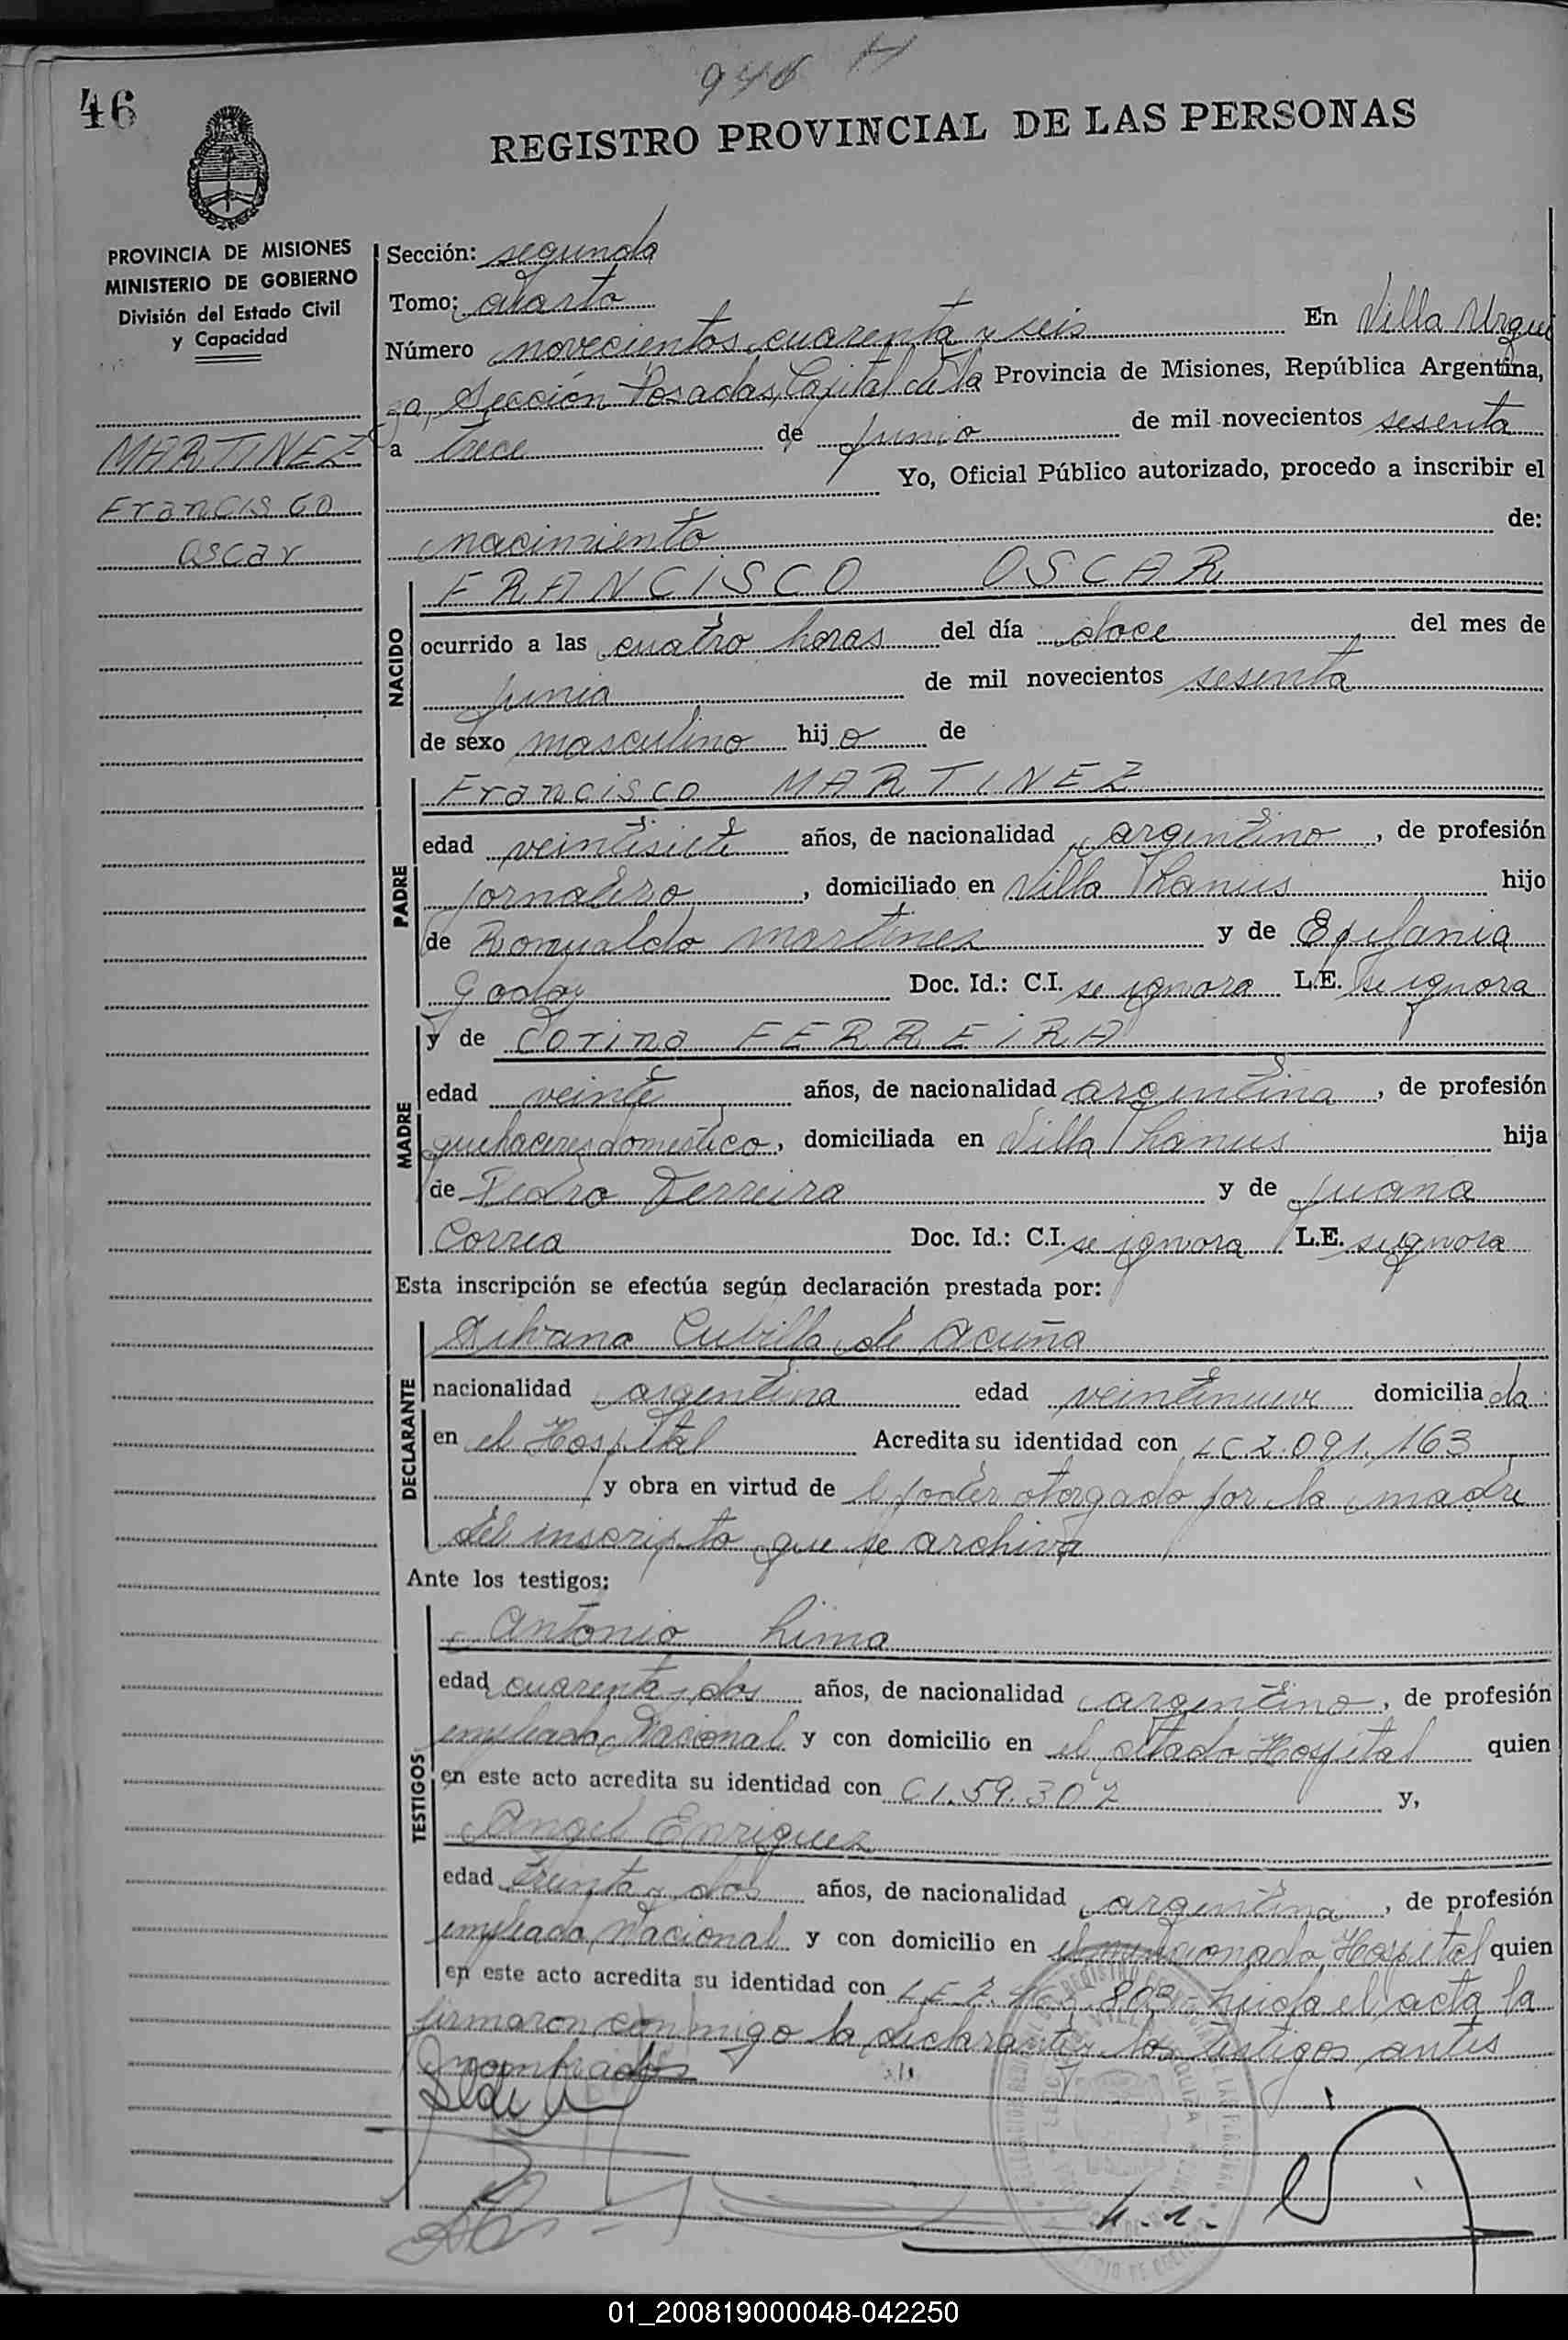 946
46
REGISTRO PROVINCIAL DE LAS PERSONAS
PROVINCIA DE MISIONES
MINISTERIO DE GOBIERNO
División del Estado Civil
y Capacidad
MARTINEZ
Francisco
Oscar
Sección: segunda
Tomo: cuarto
Número novecientos cuarenta y seis En Villa Urqui
za, Sección Posadas, Capital de la Provincia de Misiones, República Argentina,
a trece de junio de mil novecientos sesenta
Yo, Oficial Público autorizado, procedo a inscribir el
nacimiento de:
NACIDO
FRANCISCO OSCAR
ocurrido a las cuatro horas del día doce del mes de
junio de mil novecientos sesenta
de sexo masculino hijo de
PADRE
Francisco MARTINEZ
edad veintisiete años, de nacionalidad argentino, de profesión
jornalero, domiciliado en Villa Lhanus hijo
de Romualdo Martinez y de Epifania
Godoy Doc. Id.: C.I. se ignora L.E. se ignora
MADRE
y de Corina FERREIRA
edad veinte años, de nacionalidad argentina, de profesión
quehaceres doméstico, domiciliada en Villa Lhanus hija
de Pedro Ferreira y de Juana
Correa Doc. Id.: C.I. se ignora L.E. se ignora
Esta inscripción se efectúa según declaración prestada por:
DECLARANTE
Silvana Cubilla de Acuña
nacionalidad argentina edad veintinueve domiciliada
en el Hospital Acredita su identidad con LC 2.091.163
y obra en virtud de el poder otorgado por la madre
del inscripto que se archiva
Ante los testigos:
TESTIGOS
Antonio Lima
edad cuarenta y dos años, de nacionalidad argentino, de profesión
empleado Nacional y con domicilio en el citado Hospital quien
en este acto acredita su identidad con CI.59.307 y,
Angel Enriquez
edad treinta y dos años, de nacionalidad argentina, de profesión
empleado Nacional y con domicilio en el mencionado Hospital quien
en este acto acredita su identidad con L.E. leida el acta la
firmaron conmigo la declarante y los testigos antes
nombrados
01_200819000048-042250